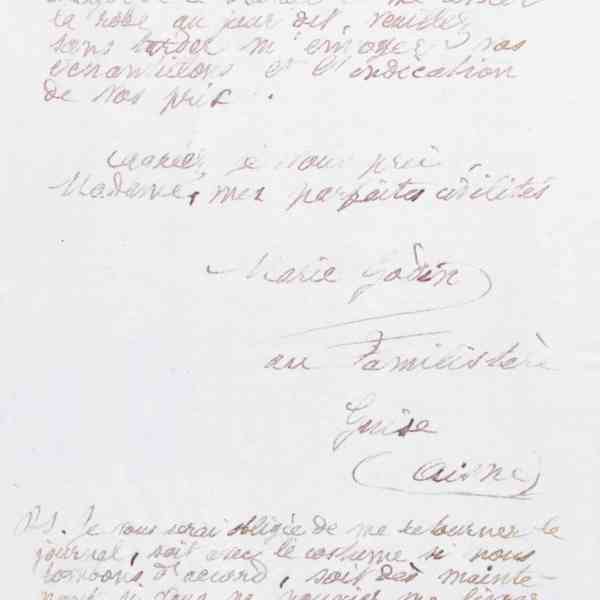 la robe au jour dit, veuillez
sans tarder m'envoyer vos
échantillons et l'indication
de vos prix.
Agréez, je vous prie,
Madame, mes parfaites civilités
Marie Godin
au Familistère
Guise
(Aisne)
P.S. Je vous serai obligée de me retourner le
journal, soit avec le costume si nous
tombons d'accord, soit dès mainte-
nant si vous ne pouviez me livrer